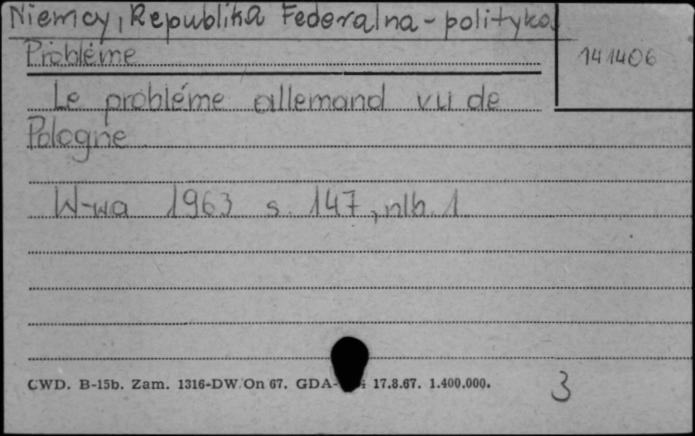 Niemcy, Republika Federalna - polityka
Probléme
141406
Le probléme allemand vu de
Pologne
W-wa 1963 s. 147, nlb. 1
CWD. B-15b. Zam. 1316-DW/On 67. GDA- 17.8.67. 1.400.000.
3